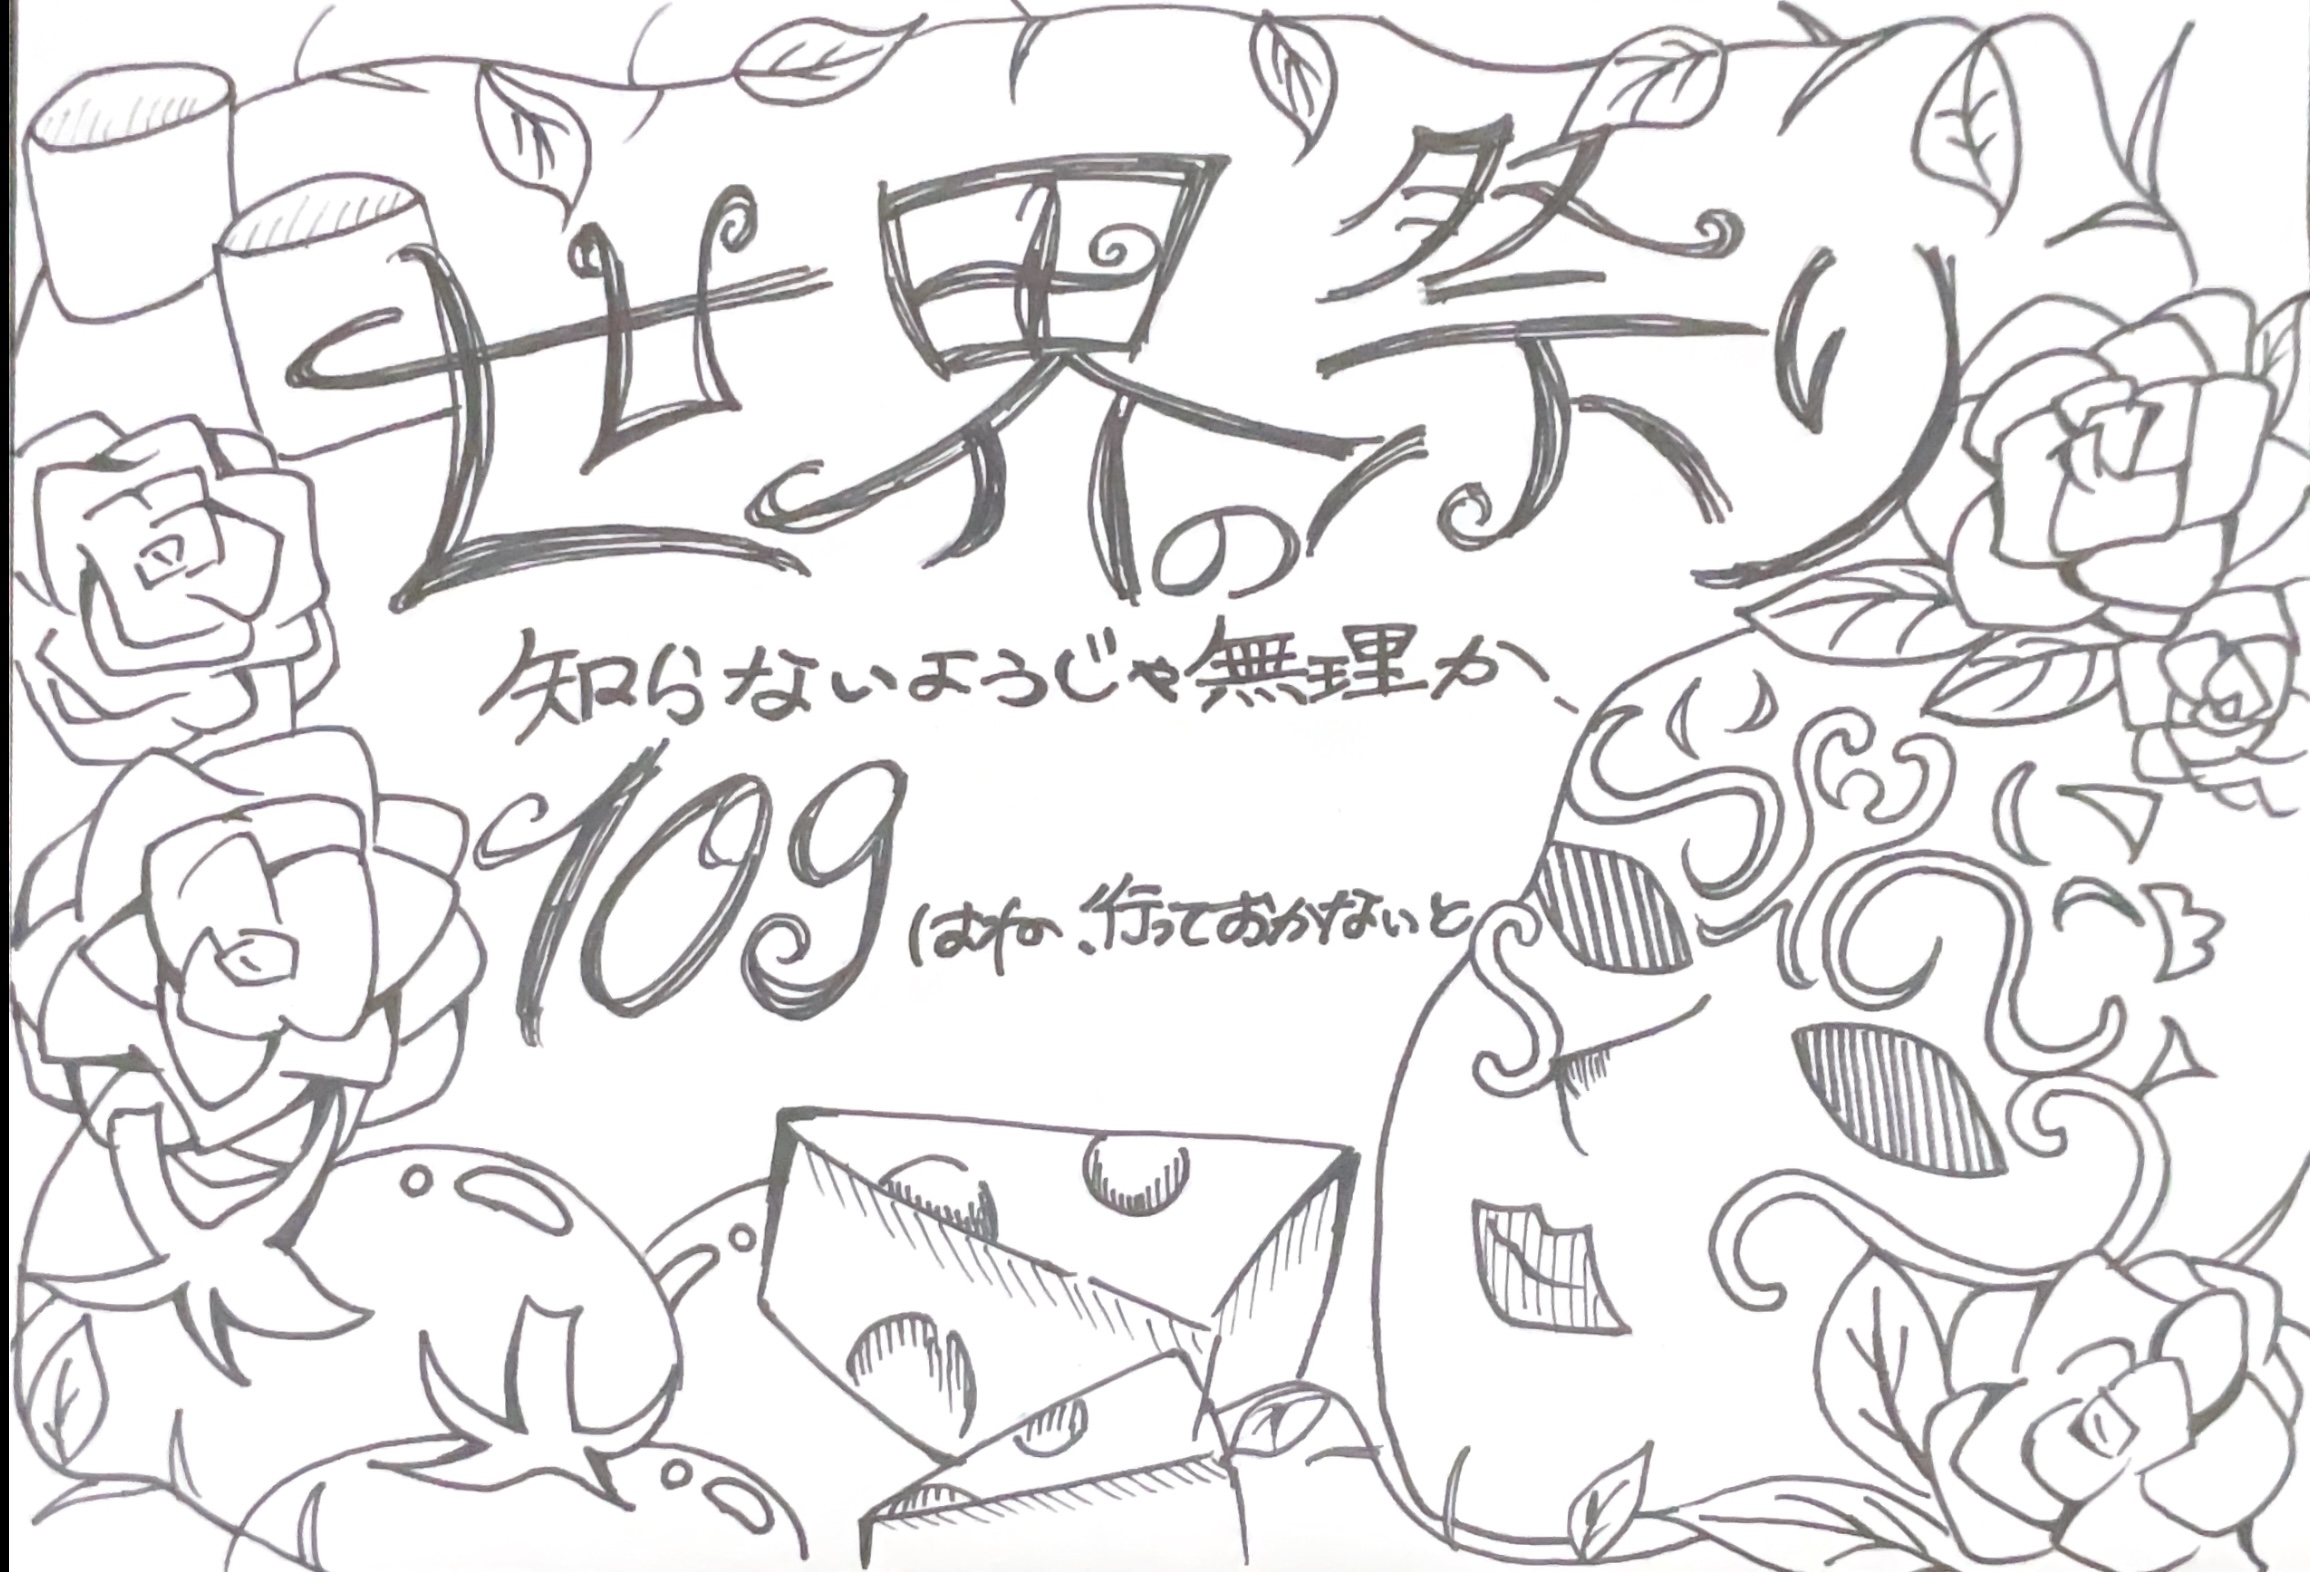 世界の祭り
知らないようじゃ無理か、
109はね、行っておかないと